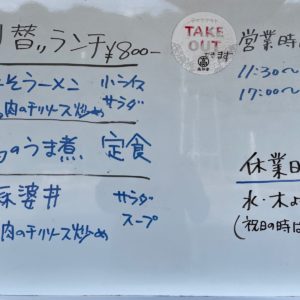 替ランチ ¥800-
そラーメン 小ライス
肉のチリソース炒め サラダ
のうま煮 定食
麻婆丼 サラダ
肉のチリソース炒め スープ
TAKE
OUT
できます
営業時
11:30〜
17:00〜
休業日
水・木よ
(祝日の時は